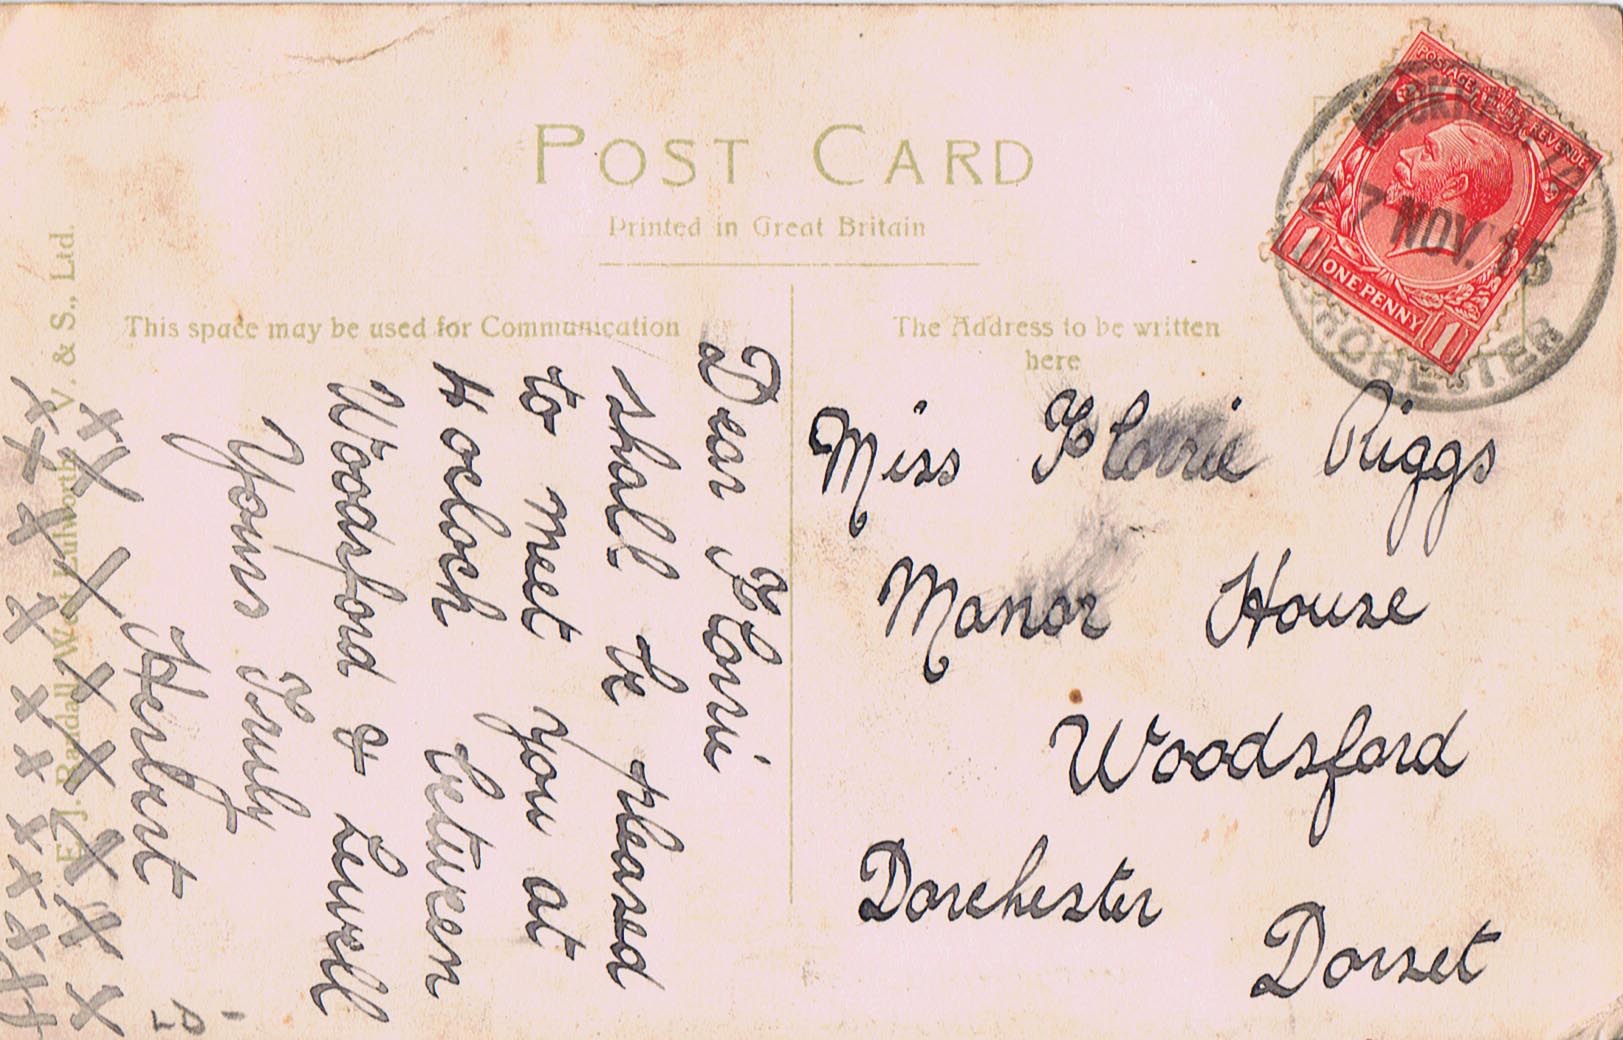 POST CARD
Printed in Great Britain
This space may be used for Communication
The Address to be written
here
Dear Florrie
shall be pleased
to meet you at
4 oclock between
Woodsford & Luwell
Yours Truly
Herbert
x x x x x x x x x
x x x x x x x x x
E. J. Randall, West Lulworth. V. & S., Ltd.
Miss Florrie Riggs
Manor House
Woodsford
Dorchester
Dorset
POSTAGE REVENUE
1 ONE PENNY 1
27 NOV. 15
DORCHESTER